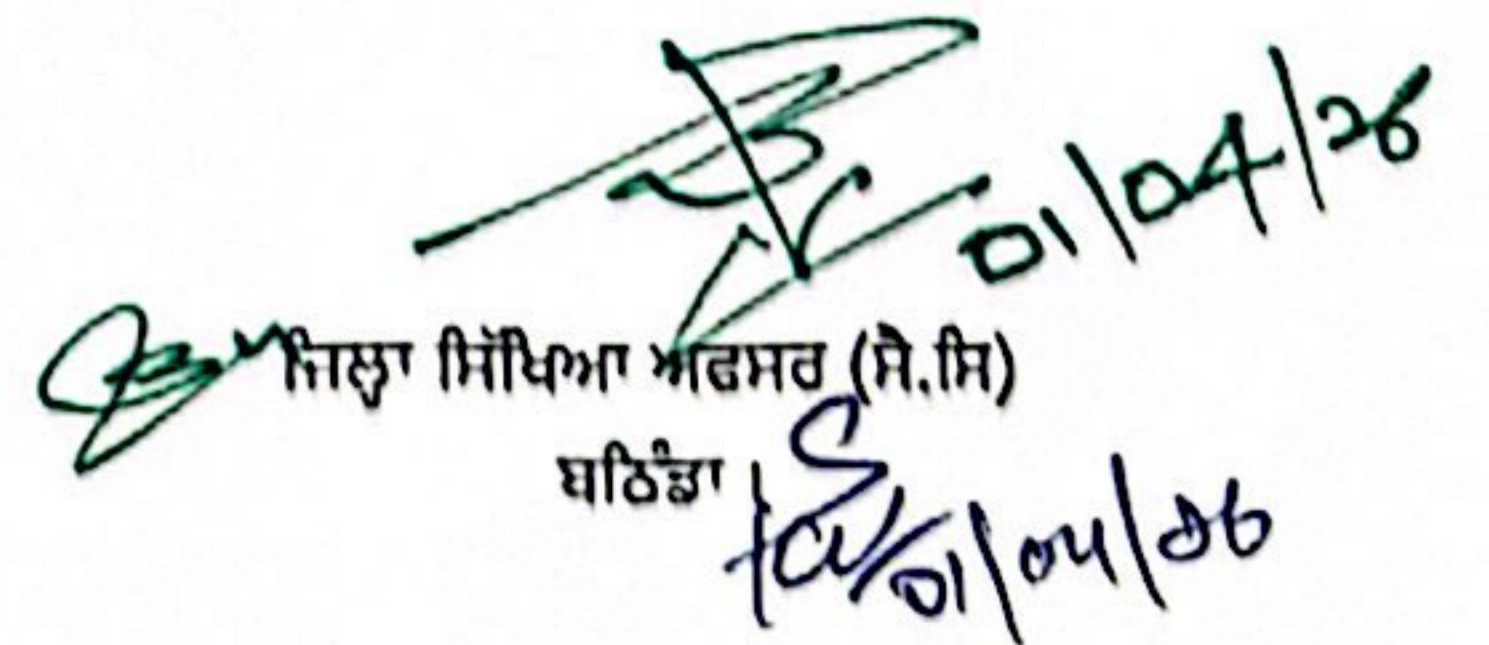 01/04/26
ਜਿਲ੍ਹਾ ਸਿੱਖਿਆ ਅਫਸਰ (ਸੈ.ਸਿ)
ਬਠਿੰਡਾ
01/04/26